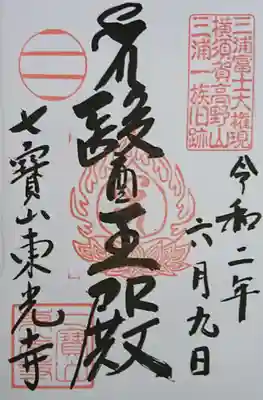 三浦富士大権現
横須賀高野山
三浦一族旧跡
令和二年
六月九日
醫王殿
七寶山東光寺